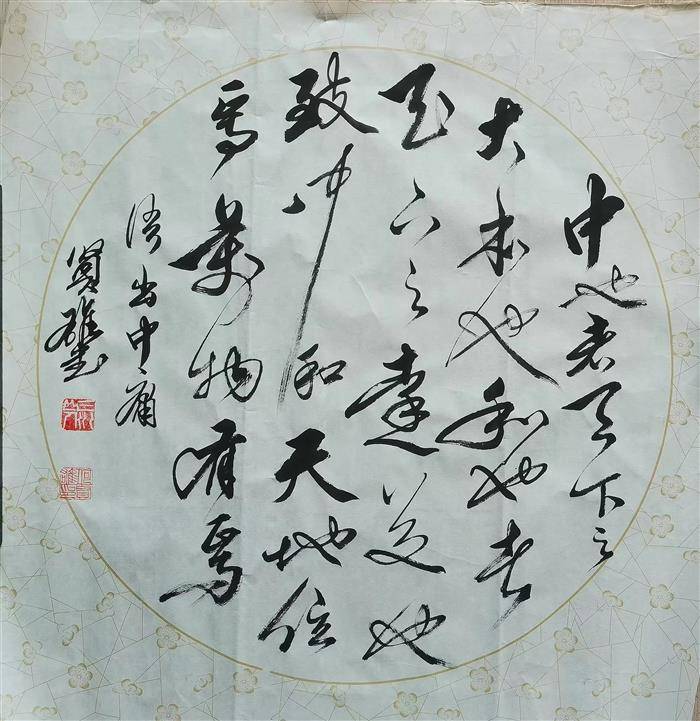 中也者天下之
大本也和也者
天下之達道也
致中和天地位
焉萬物育焉
语出中庸
寶雄书